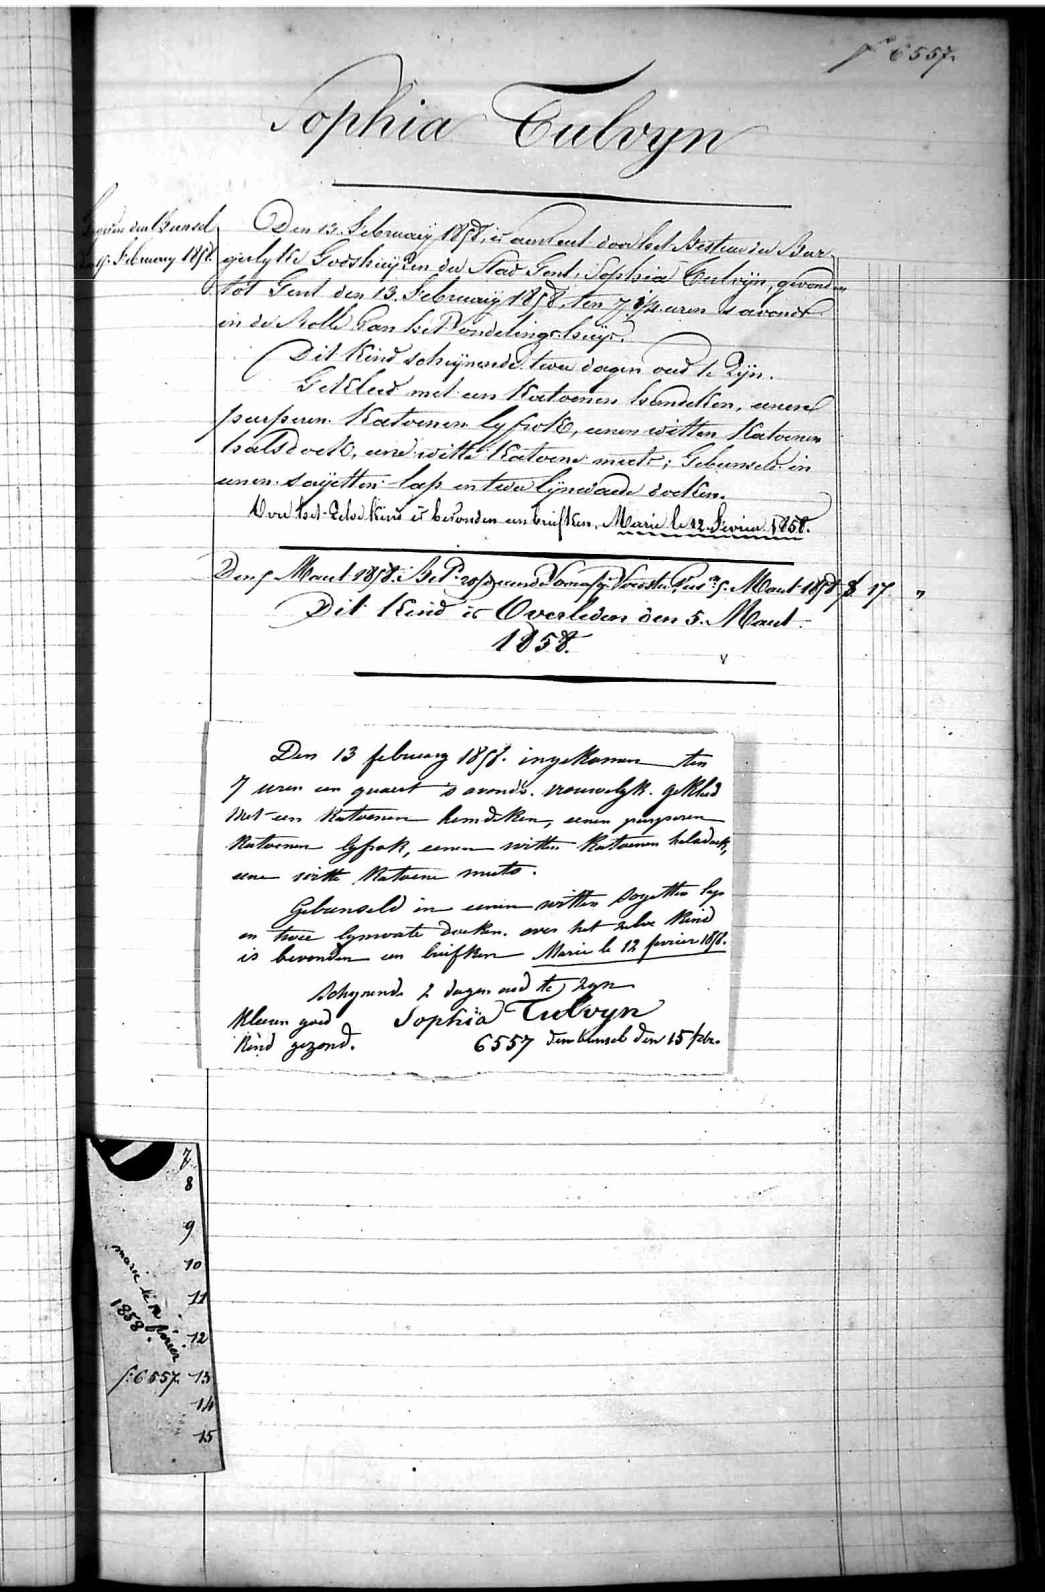 fo 6557.
Sophia Tulvyn
den Bunsel
15 February 1858.
Den 13 February 1858, is aanveerd door het Bestier der Bur-
gerlyke Godshuyzen der Stad Gent, Sophia Tulvyn, gevonden
tot Gent den 13 February 1858, ten 7 1/4 uren s'avonds
in de Rolle van het Vondelingshuys.
Dit Kind schynende twee dagen oud te Zyn.
Gekleed met een Katoenen hemdeken, eenen
purperen Katoenen lyfrok, eenen witten Katoenen
halsdoek, eene witte Katoene muts; Gebunseld in
eenen sayetten lap en twee lynwaede doeken.
Over het Zelve Kind is bevonden een briefken, Marie le 12 Fevrier 1858.
Den 5 Maart 1858. 5 Maart 1858 $ 17 "
Dit Kind is Overleden den 5 Maart
1858.
Den 13 february 1858. ingekomen ten
7 uren een quaert s avonds. vrouwelyk. gekleed
Met een Katoenen hemdeken, eenen purperen
Katoenen lyfrok, eenen witten Katoenen halsdoek,
eene witte Katoene muts.
Gebunseld in eenen witten sayetten lap
en twee lynwate doeken. over het zelve Kind
is bevonden een briefken Marie le 12 fevrier 1858.
schynende 2 dagen oud te zyn
Kleeren goed Sophia Tulvyn
Kind gezond. 6557 den bunsel den 15 febr.
7
8
9
10
11
12
13
14
15
marie le 12 fevrier
1858.
f: 6557.